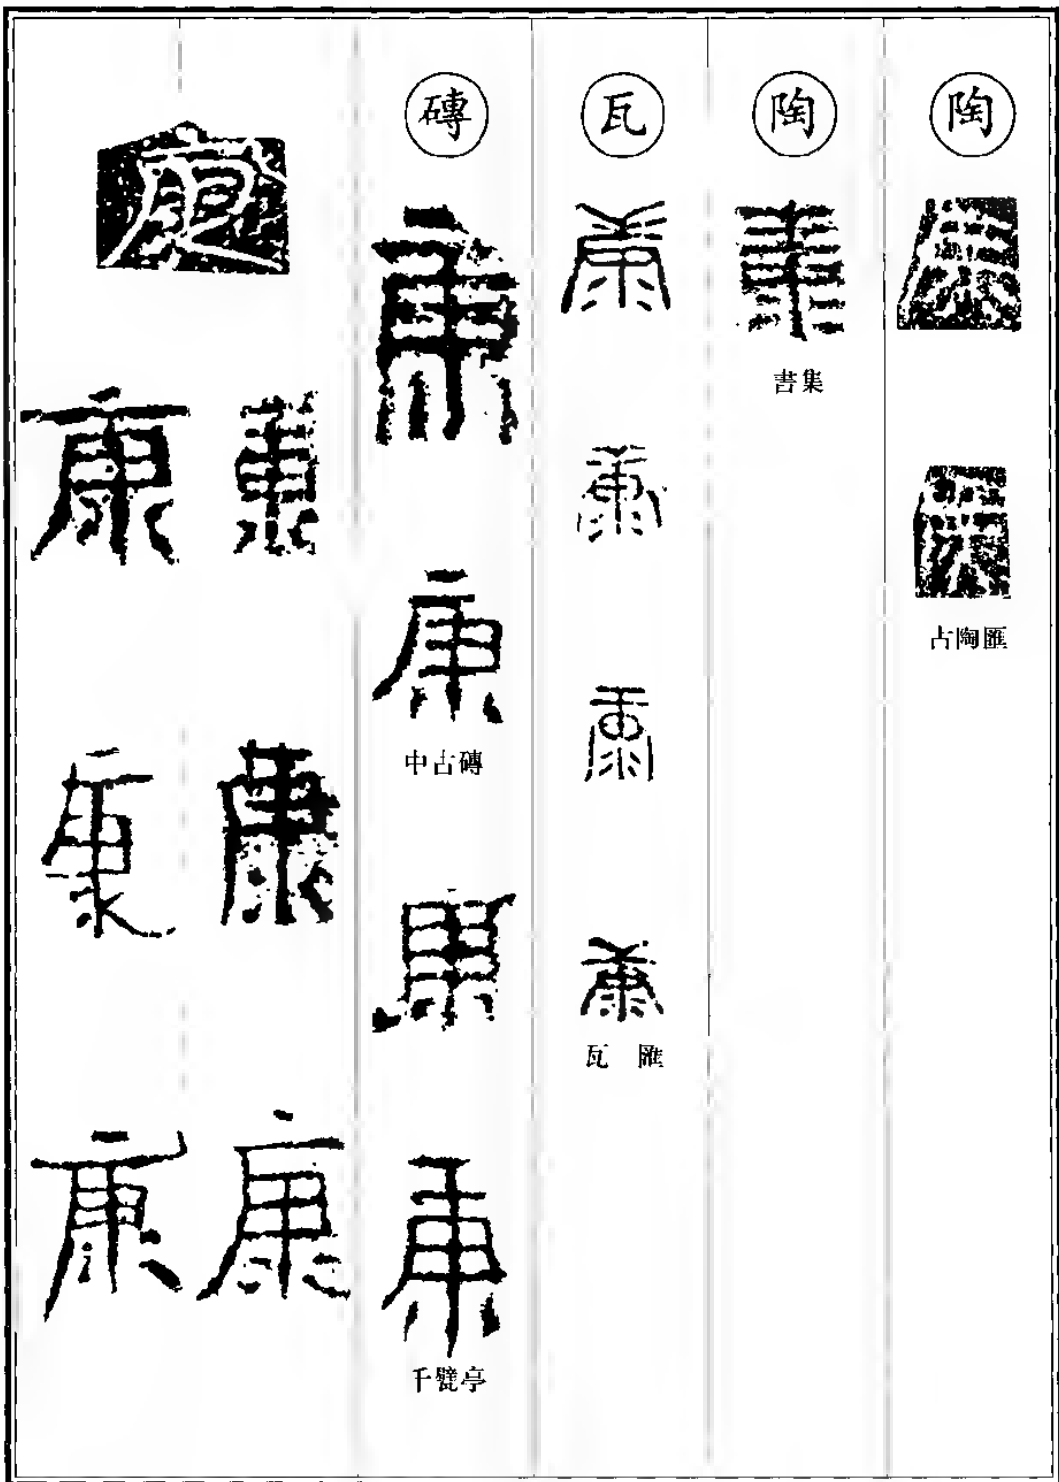 陶
康
康
古陶匯
陶
康
書集
瓦
康
康
康
康
瓦匯
磚
康
康
中古磚
康
康
千甓亭
康
康
康
康
康
康
康